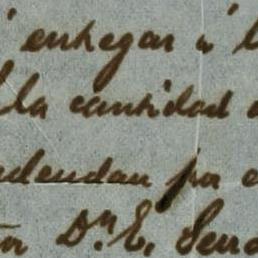 entregar a l
la cantidad
adeudan por
Dn E. Send